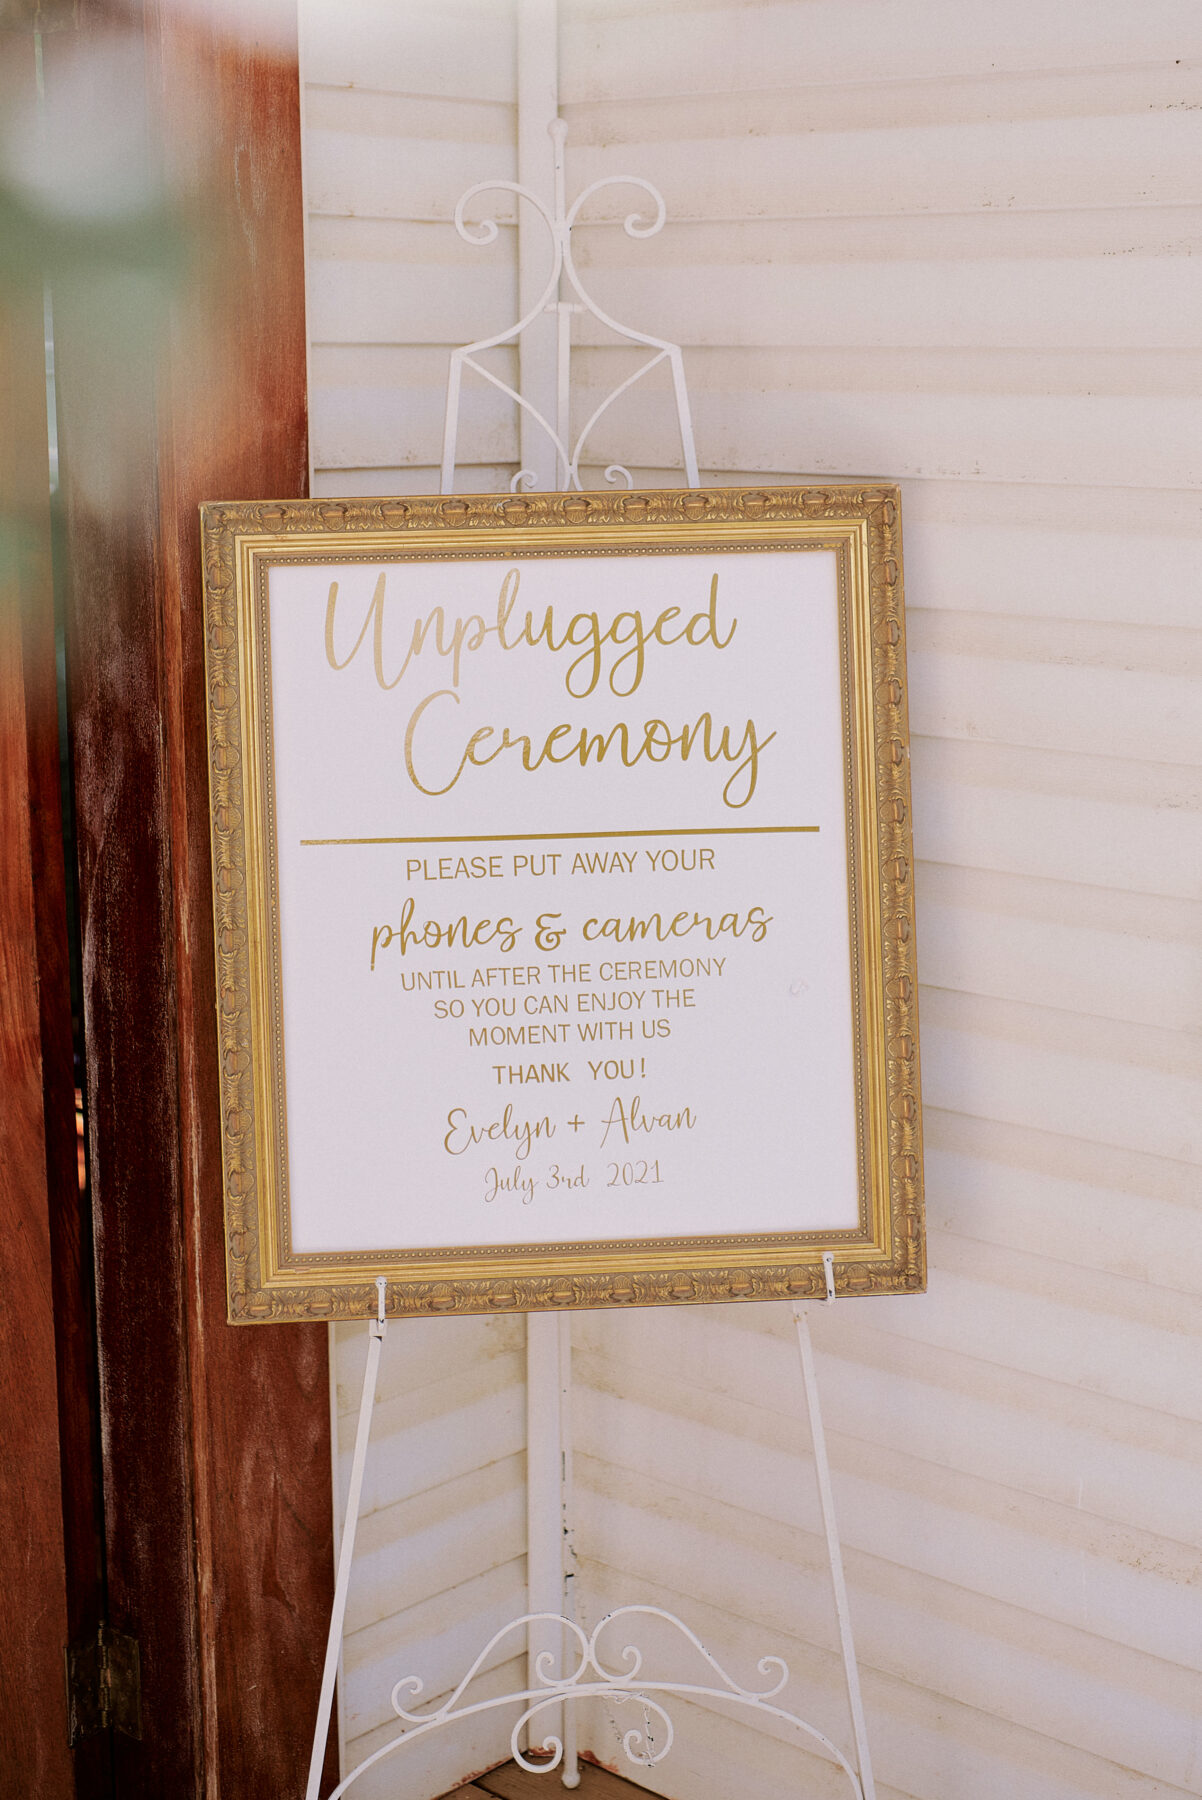 Unplugged
Ceremony
PLEASE PUT AWAY YOUR
phones & cameras
UNTIL AFTER THE CEREMONY
SO YOU CAN ENJOY THE
MOMENT WITH US
THANK YOU!
Evelyn + Alvan
July 3rd 2021